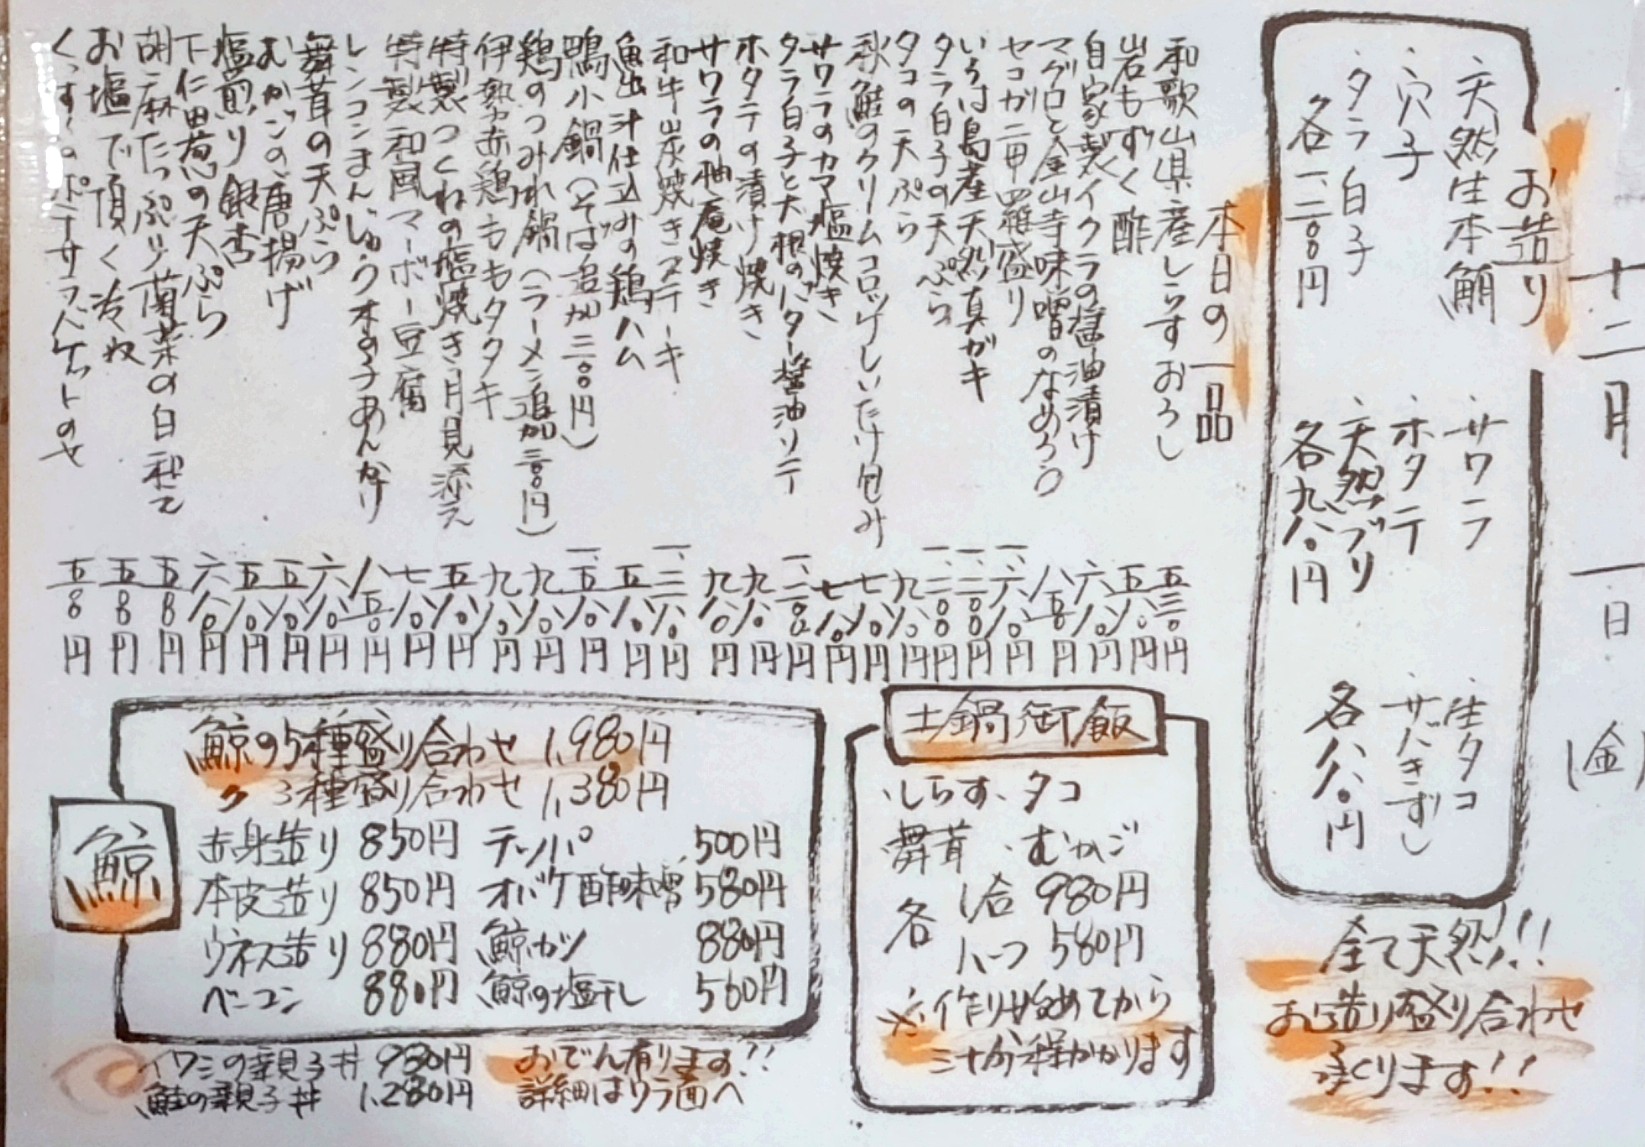 十二月
一日
(金)
お造り
・天然生本鮪
・穴子
・タラ白子
各一、二〇〇円
・サワラ
・ホタテ
・天然ブリ
各九八〇円
・生タコ
・サバきずし
各八八〇円
全て天然!!
お造り盛り合わせ
承ります!!
本日の一品
和歌山県産しらすおろし 五三〇円
岩もずく酢 五八〇円
自家製イクラの醤油漬け 六八〇円
マグロと金山寺味噌のなめろう 八八〇円
セコガニ甲羅盛り 一、六八〇円
いろは島産天然真ガキ 一、二〇〇円
タラ白子の天ぷら 一、二〇〇円
タコの天ぷら 九八〇円
秋鮭のクリームコロッケしいたけ包み 七八〇円
サワラのカマ塩焼き 七八〇円
タラ白子と大根のバター醤油ソテー 一、二〇〇円
ホタテの漬け焼き 九八〇円
サワラの柚庵焼き 九八〇円
和牛炭焼きステーキ 一、三八〇円
魚出汁仕込みの鶏ハム 五八〇円
鴨小鍋(そば追加三〇〇円) 一、五八〇円
鶏のつみれ鍋(ラーメン追加三〇〇円) 九八〇円
伊勢赤鶏ももタタキ 九八〇円
特製つくねの塩焼き月見添え 五八〇円
特製和風マーボー豆腐 七八〇円
レンコンまんじゅう木の子あんかけ 八五〇円
舞茸の天ぷら 六八〇円
むかごの唐揚げ 五八〇円
塩煎り銀杏 五八〇円
下仁田葱の天ぷら 六八〇円
胡麻たっぷり菊菜の白和え 五八〇円
お塩で頂く冷奴 五八〇円
くんすけのポテサラバケットのせ 五八〇円
土鍋御飯
・しらす・タコ
舞茸・むかご
各 1合 980円
ハーフ 580円
※作り始めてから
三十分程かかります
鯨
鯨の5種盛り合わせ 1,980円
〃 3種盛り合わせ 1,380円
赤身造り 850円 テッパ 500円
本皮造り 850円 オバケ酢味噌 580円
ウネス造り 880円 鯨カツ 880円
ベーコン 880円 鯨の塩干し 560円
イワシの親子丼 980円
鮭の親子丼 1,280円
おでん有ります!!
詳細はウラ面へ